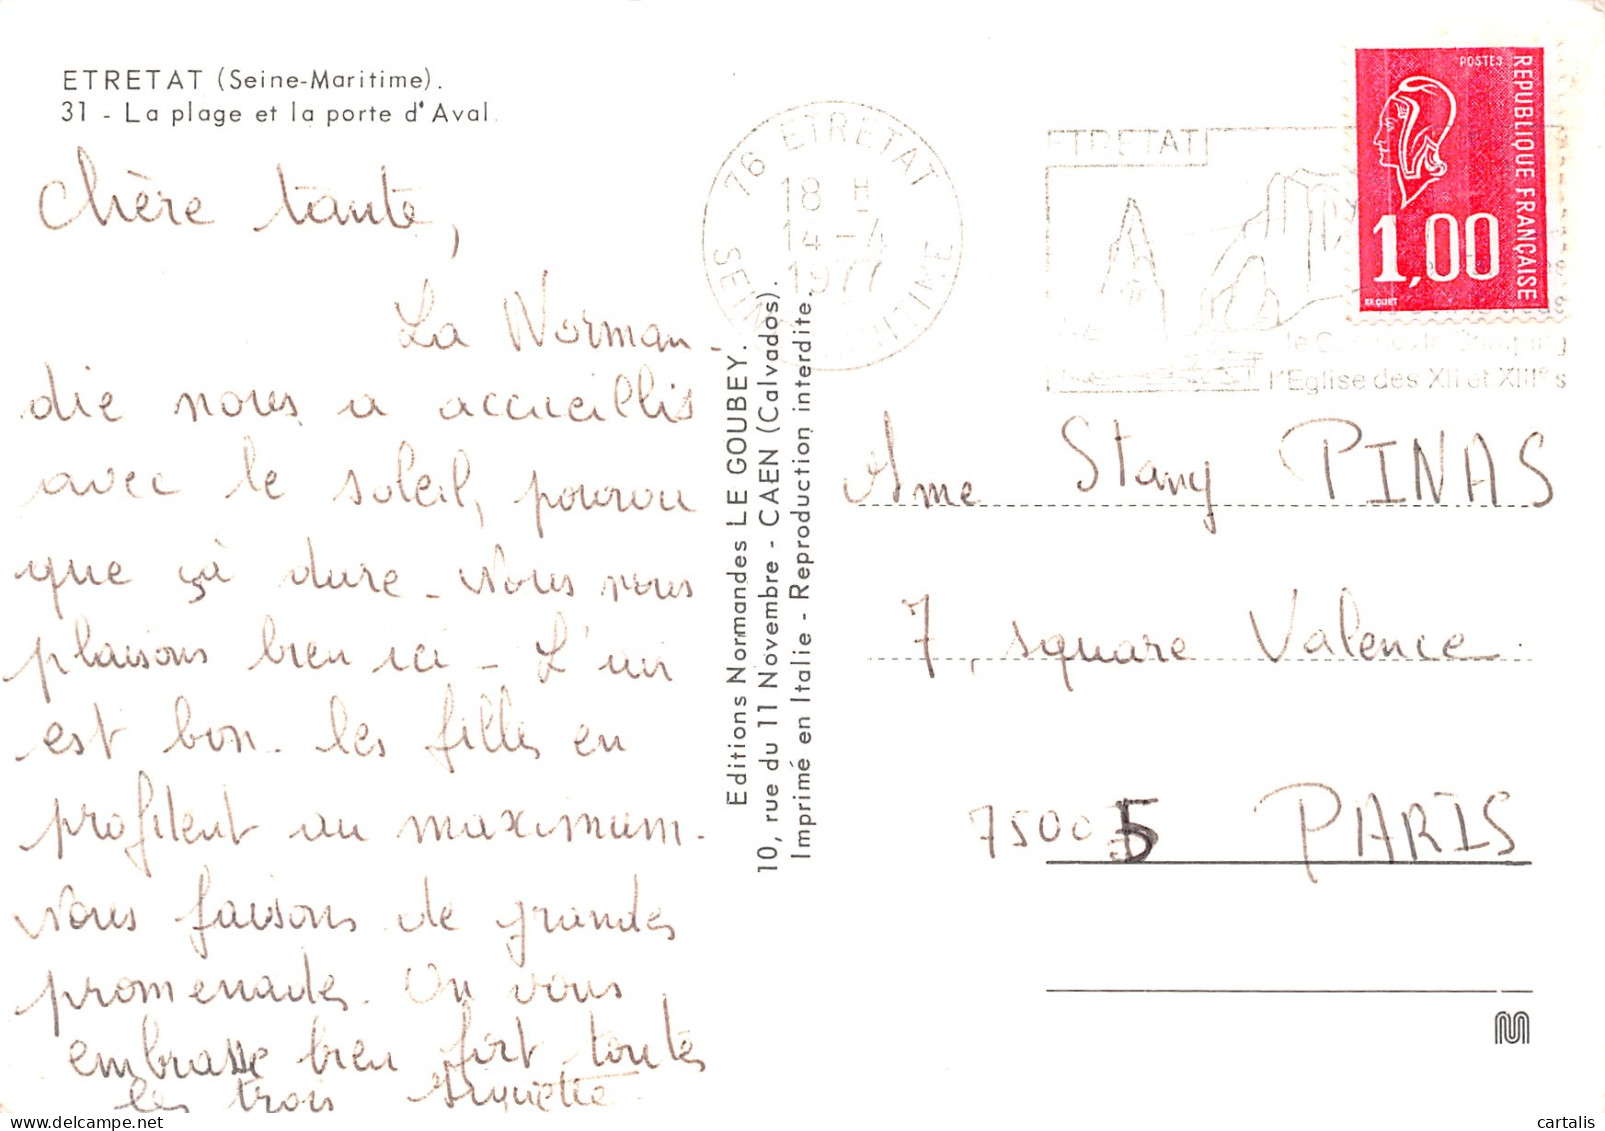 ETRETAT (Seine-Maritime).
31 - La plage et la porte d'Aval.
Chère tante,
La Norman-
die nous a accueillis
avec le soleil, pourvu
que çà dure - Nous nous
plaisons bien ici - L'air
est bon - les filles en
profitent au maximum.
Nous faisons de grandes
promenades. On vous
embrasse bien fort toutes
les trois
Editions Normandes LE GOUBEY.
10, rue du 11 Novembre - CAEN (Calvados).
Imprimé en Italie - Reproduction interdite.
76 ETRETAT
18 H
14-4
1977
SEINE MARITIME
ETRETAT
l'Eglise des XII et XIIIe s
POSTES
REPUBLIQUE FRANÇAISE
1,00
BEQUET
Mme Stany PINAS
7, square Valence
75005 PARIS
cartalis